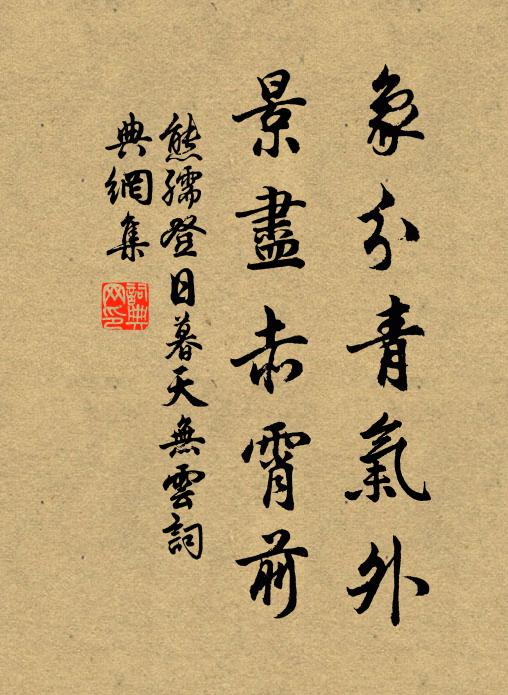 象分青氣外
景盡赤霄前
熊孺登日暮天無雲詞
典網集
詞典网印